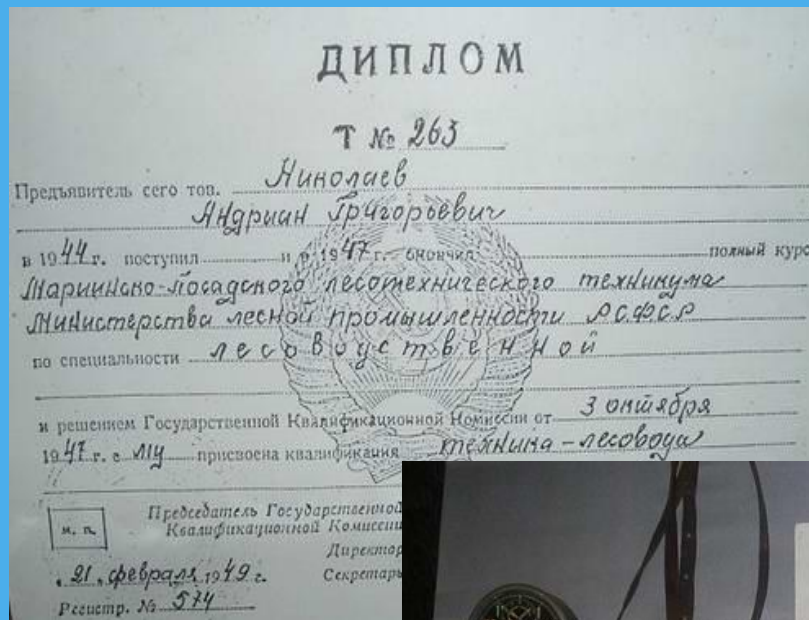 ДИПЛОМ
Т № 263
Предъявитель сего тов. Николаев
Андриан Григорьевич
в 1944 г. поступил и в 1947 г. окончил полный курс
Мариинско-Посадского лесотехнического техникума
Министерства лесной промышленности РСФСР
по специальности лесоводственной
и решением Государственной Квалификационной Комиссии от 3 октября
1947 г. с присвоена квалификация техника-лесовода
м. п.
Председатель Государственной
Квалификационной Комиссии
Директор
Секретарь
" 21 " февраля 1949 г.
Регистр. № 574